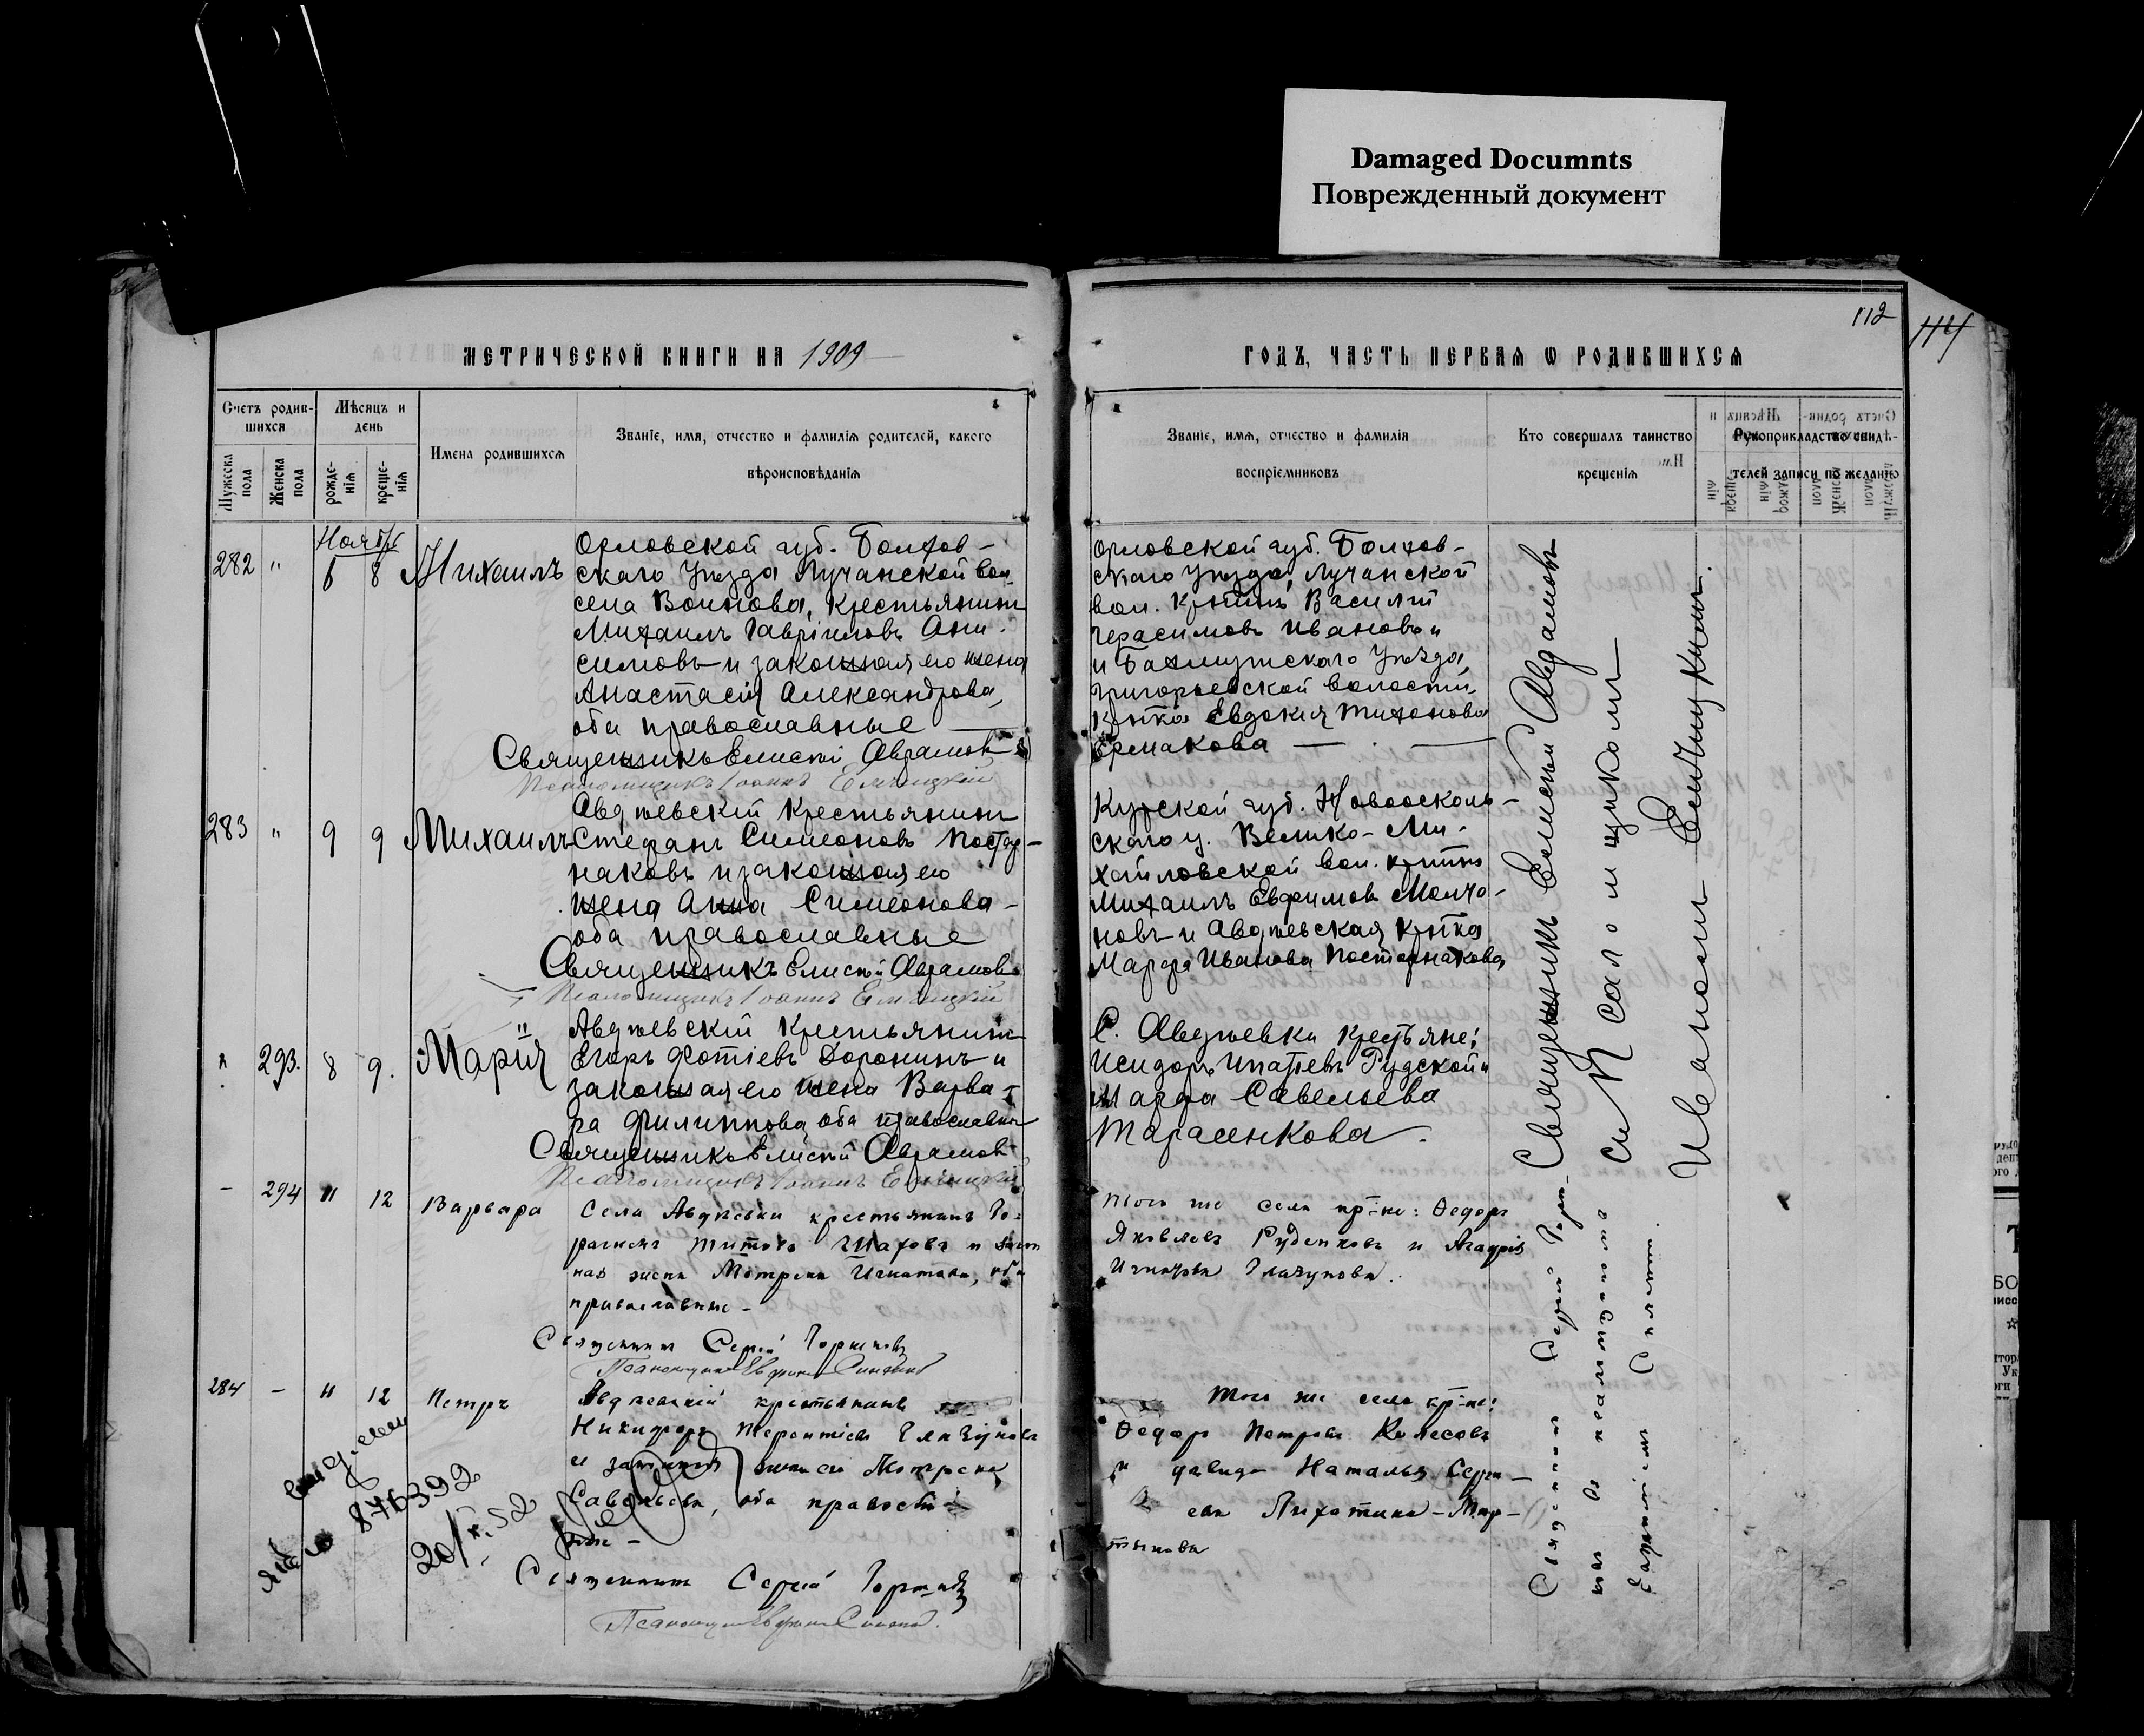 Damaged Documnts
Поврежденный документ
112
114
МЕТРИЧЕСКОЙ КНИГИ НА 1909
ГОДЪ, ЧАСТЬ ПЕРВАЯ Ѡ РОДИВШИХСЯ
Счетъ родив-
шихся
Мужеска пола
Женска пола
Мѣсяцъ и
день
рожде-
нія
креще-
нія
Имена родившихся
Званіе, имя, отчество и фамилія родителей, какого
вѣроисповѣданія
Званіе, имя, отчество и фамилія
воспріемниковъ
Кто совершалъ таинство
крещенія
Рукоприкладство свидѣ-
телей записи по желанію
Ноябрь
282 " 6 8 Михаилъ
Орловской губ. Болхов-
скаго уѣзда Лучанской вол.
села Воинова, крестьянинъ
Михаилъ Гавріиловъ Ани-
симовъ и законная его жена
Анастасія Александрова,
оба православные
Священникъ Елисей Аврамовъ
Псаломщикъ Іоаннъ
Орловской губ. Болхов-
скаго уѣзда, Лучанской
вол. кр-нинъ Василій
Герасимовъ Ивановъ и
и Бахмутскаго уѣзда,
Григорьевской волости,
кр-тка Евдокія Тихонова
Ермакова
283 " 9 9 Михаилъ
Авдѣевскій крестьянинъ
Стефанъ Симеоновъ Постор-
наковъ и законная его
жена Анна Симеонова
оба православные
Священникъ Елисей Аврамовъ
Псаломщикъ Іоаннъ
Курской губ. Новоосколь-
скаго у. Велико-Ми-
хайловской вол. кр-нинъ
Михаилъ Евфимовъ Молча-
новъ и Авдѣевская кр-тка
Марфа Иванова Посторнакова
" 293. 8 9. Марія
Авдѣевскій крестьянинъ
Егоръ Фотіевъ Доронинъ и
законная его жена Варва-
ра Филиппова, оба православн.
Священникъ Елисей Аврамовъ
Псаломщикъ Іоаннъ
С. Авдѣевки крестьяне:
Исидоръ Ипатіевъ Рудской и
Марфа Савельева
Тарасенкова.
Священникъ Елисей Аврамовъ
съ Псаломщикомъ
Иваномъ
- 294 11 12 Варвара
Села Авдѣевки крестьянинъ
Титовъ и закон
ная жена Мотрона Игнатова, оба
православные -
Священникъ Сергій
Псаломщикъ
Того же села кр-не: Ѳедоръ
Яковлевъ Руденковъ и Агафія
Игнатова Глазунова.
284 - 11 12 Петръ
Авдѣевскій крестьянинъ
Никифоръ Терентіевъ
и законная жена его Мотрона
Савельева, оба православ-
ные -
Священникъ Сергій
Псаломщикъ
Того же села кр-не:
Ѳедоръ Петровъ Колесовъ
и дѣвица Наталья Серги-
ева
Священникъ Сергій
876392